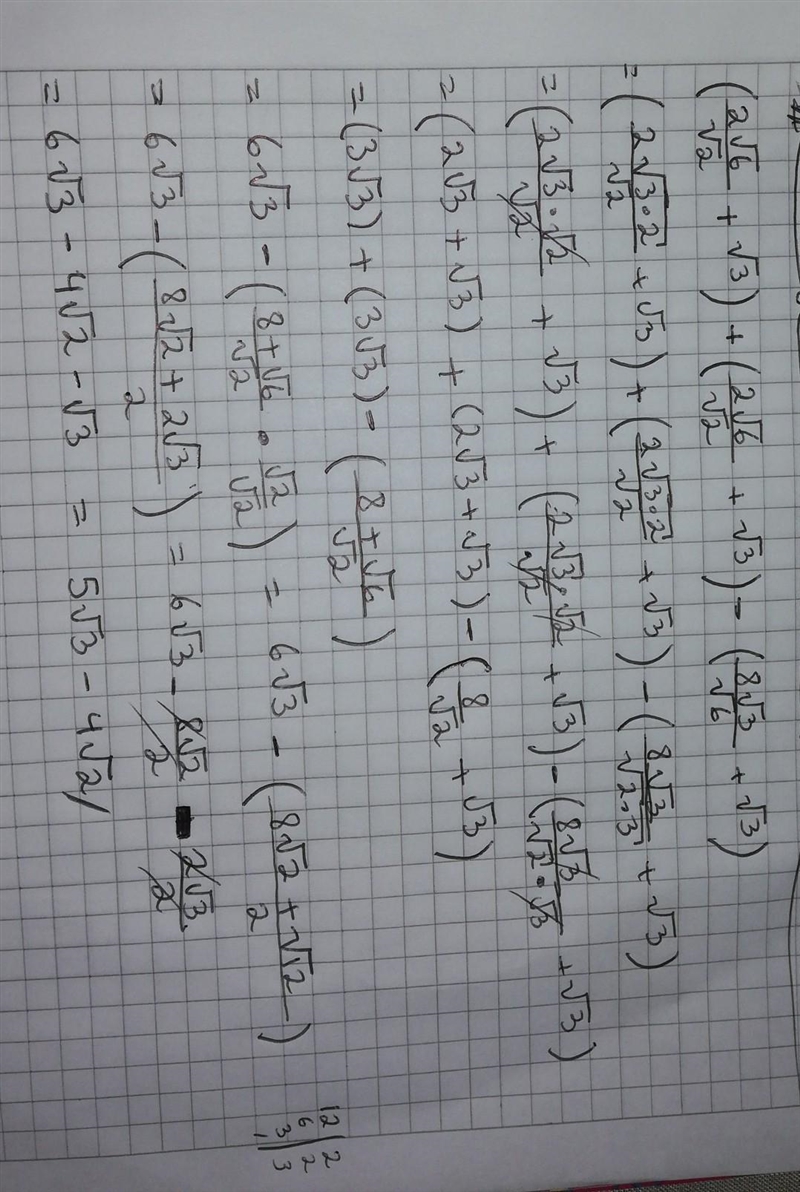 (2√6/√2 + √3) + (2√6/√2 + √3) - (8√3/√6 + √3)
= (2√3·2/√2 + √3) + (2√3·2/√2 + √3) - (8√3/√2·3 + √3)
= (2√3·√2/√2 + √3) + (2√3·√2/√2 + √3) - (8√3/√2·√3 + √3)
= (2√3 + √3) + (2√3 + √3) - (8/√2 + √3)
= (3√3) + (3√3) - (8 + √6/√2)
= 6√3 - (8 + √6/√2 · √2/√2) = 6√3 - (8√2 + √12/2)
= 6√3 - (8√2 + 2√3/2) = 6√3 - 8√2/2 - 2√3/2
= 6√3 - 4√2 - √3 = 5√3 - 4√2//
12 | 2
6 | 2
3 | 3
1